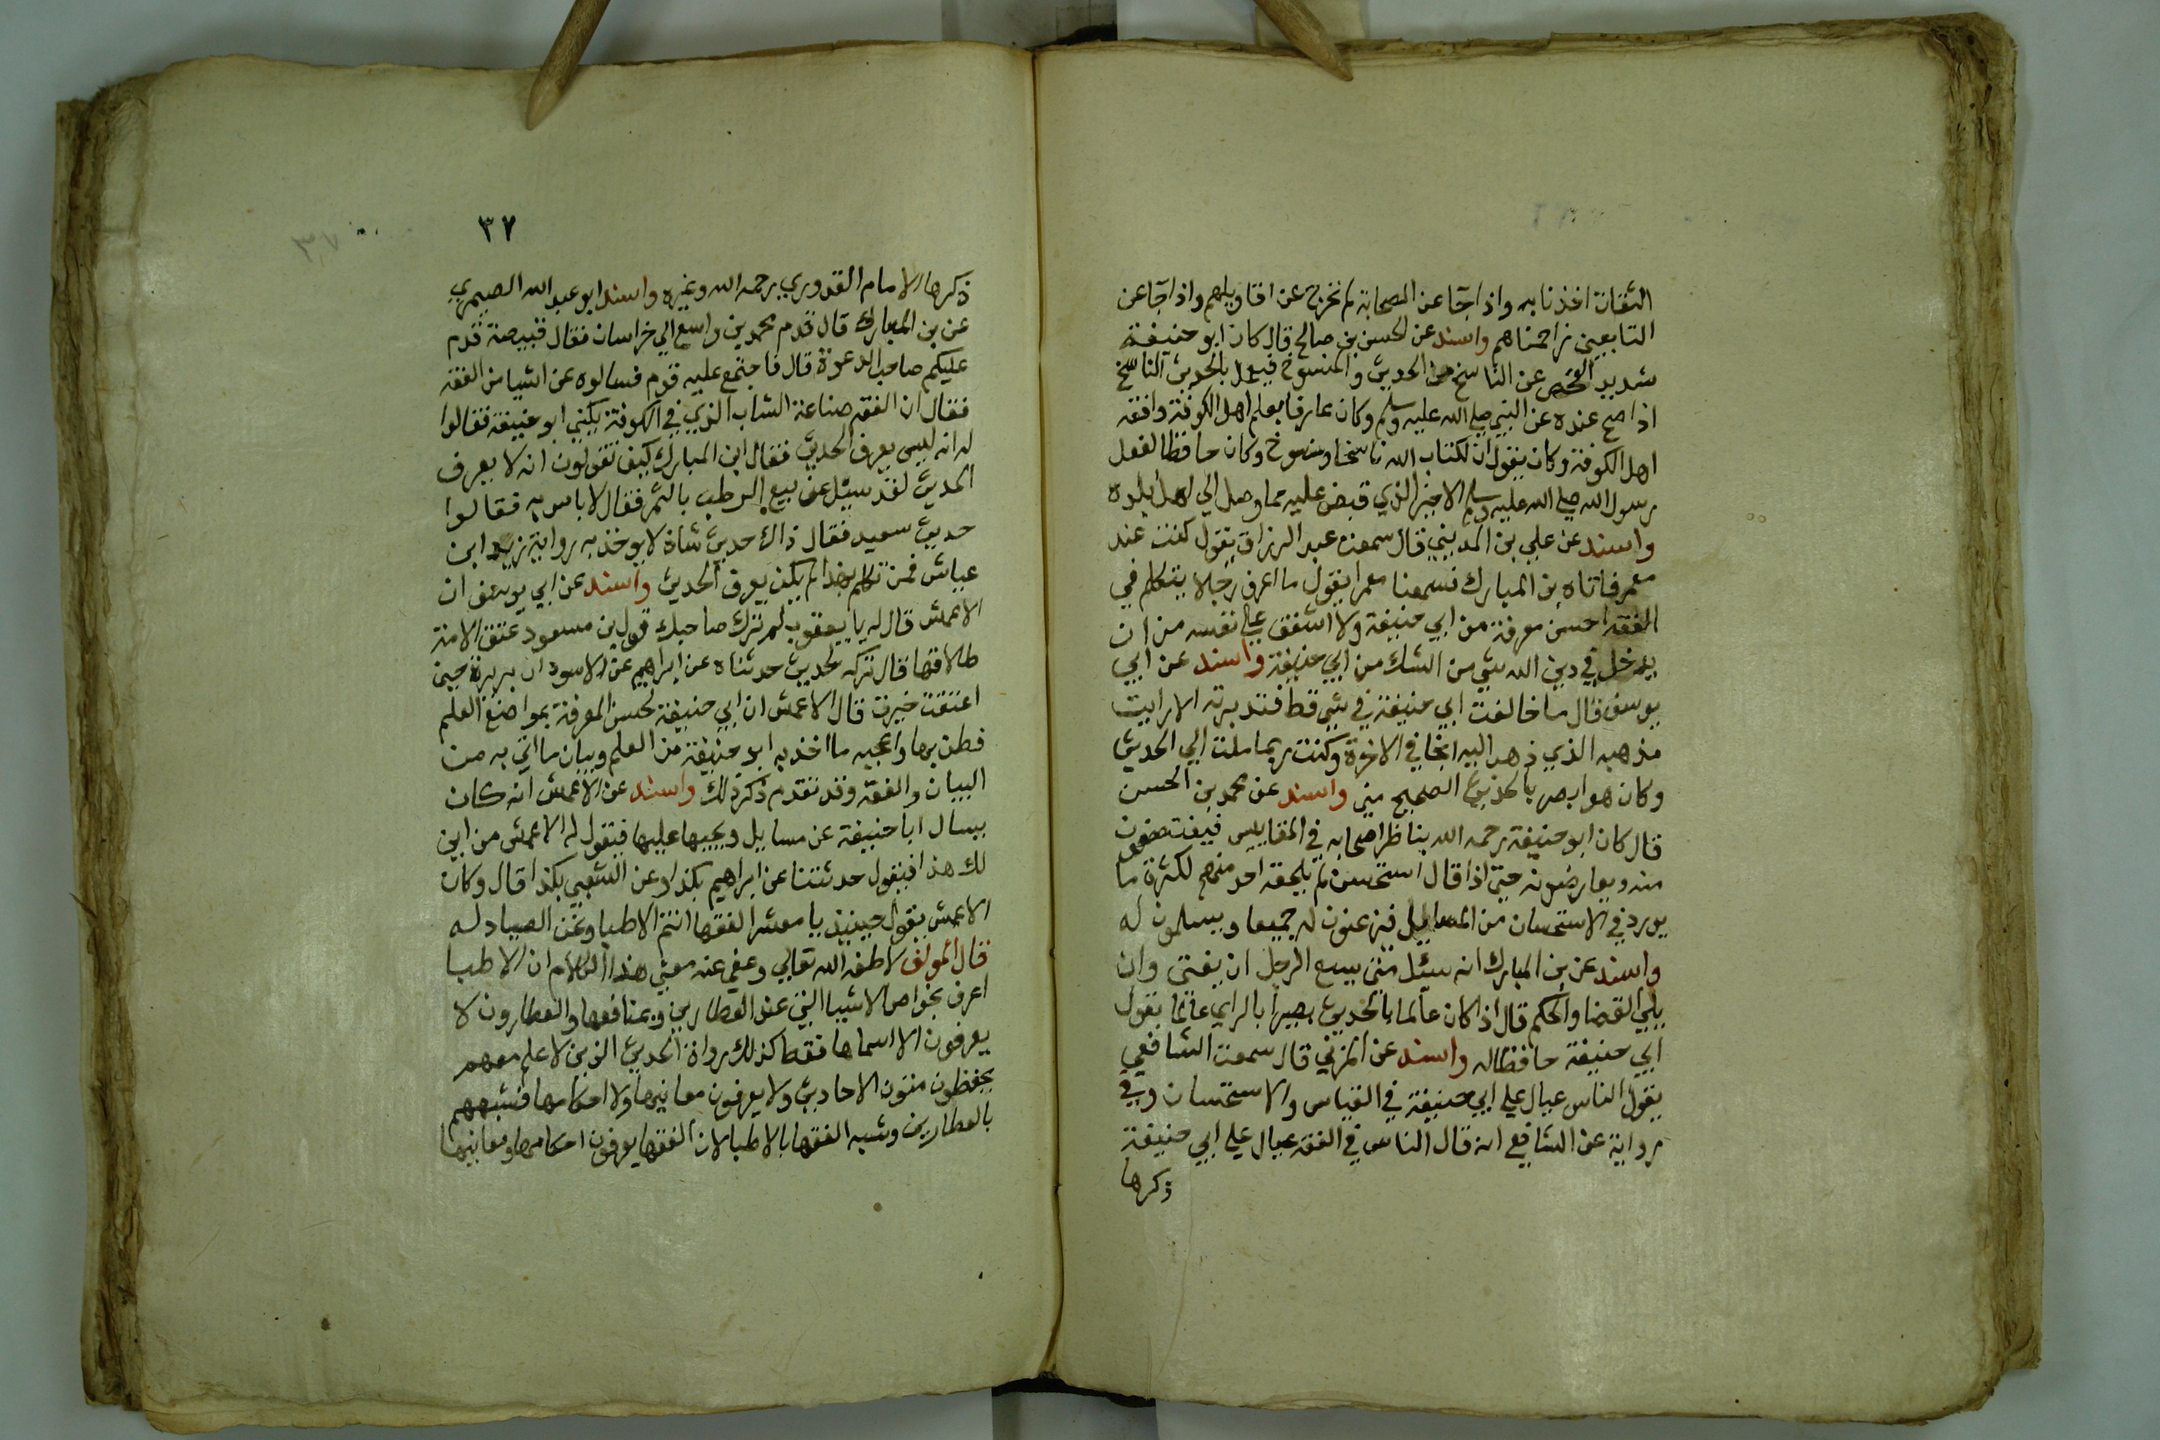 الثقات اخذنا به واذا جآ عن الصحابة لم نخرج عن اقاويلهم واذا جآ عن
التابعين زاحمناهم واسند عن الحسن بن صالح قال كان ابو حنيفة
شديد الفحص عن الناسخ من الحديث والمنسوخ فيعمل بالحديث الناسخ
اذا صح عنده عن النبي صلي الله عليه وسلم وكان عارفا بعلم اهل الكوفة وافقه
اهل الكوفة وكان يقول ان لكتاب الله ناسخا ومنسوخ وكان حافظا لفعل
رسول الله صلي الله عليه وسلم الاخير الذي قبض عليه مما وصل الي اهل بلده
واسند عن علي بن المديني قال سمعت عبد الرزاق يقول كنت عند
معمر فاتاه بن المبارك فسمعنا معمرا يقول ما اعرف رجلا يتكلم في
الفقه احسن معرفة من ابي حنيفة ولا اشفق علي نفسه من ان
يدخل في دين الله شي من الشك من ابي حنيفة واسند عن ابي
يوسف قال ما خالفت ابي حنيفة في شي قط فتدبرته الا رايت
مذهبه الذي ذهب اليه انجا في الاخرة وكنت ربما ملت الي الحديث
وكان هو ابصر بالحديث الصحيح مني واسند عن محمد بن الحسن
قال كان ابو حنيفة رحمه الله يناظر اصحابه في المقاييس فينتصفون
منه ويعارضونه حتي اذا قال استحسن لم يلحقه احد منهم لكثرة ما
يورد في الاستحسان من المسايل فيذعنون له جميعا ويسلمون له
واسند عن بن المبارك انه سئل متي يسع الرجل ان يفتي وان
يلي القضا والحكم قال اذا كان عالما بالحديث بصيرا بالراي عالما بقول
ابي حنيفة حافظا له واسند عن المزني قال سمعت الشافعي
يقول الناس عيال علي ابي حنيفة في القياس والاستحسان وفي
رواية عن الشافعي انه قال الناس في الفقه عيال علي ابي حنيفة
ذكرها
٣٧
ذكرها الامام القدوري رحمه الله وغيره واسند ابو عبد الله الصيمري
عن بن المبارك قال قدم محمد بن واسع الي خراسان فقال قبيصة قدم
عليكم صاحب الدعوة قال فاجتمع عليه قوم فسالوه عن اشيا من الفقه
فقال ان الفقه صناعة الشاب الذي في الكوفة يكني ابو حنيفة فقالوا
له انه ليس يعرف الحديث فقال ابن المبارك كيف تقولون انه لا يعرف
الحديث لقد سئل عن بيع الرطب بالتمر فقال لا باس به فقالوا
حديث سعيد فقال ذاك حديث شاذ لا يوخذ به رواية زيد ابن
عياش فمن تكلم بهذا لم يكن يعرف الحديث واسند عن ابي يوسف ان
الاعمش قال له يا يعقوب لم ترك صاحبك قول بن مسعود عتق الامة
طلاقها قال تركه لحديث حدثناه عن ابراهيم عن الاسود ان بريرة حين
اعتقت خيرت قال الاعمش ان ابي حنيفة لحسن المعرفة بمواضع العلم
فطن بها واعجبه ما اخذ به ابو حنيفة من العلم وبيان ما اتي به من
البيان والفقه وقد تقدم ذكر ذلك واسند عن الاعمش انه كان
يسال ابا حنيفة عن مسايل ويجيبها عليها فيقول له الاعمش من اين
لك هذا فيقول حدثتنا عن ابراهيم بكذا وعن الشعبي بكذا قال وكان
الاعمش يقول حينيذ يا معشر الفقها انتم الاطبا ونحن الصيادله
قال المولف لاطفه الله تعالي وعفي عنه معني هذا الكلام ان الاطبا
اعرف بخواص الاشيا التي عند العطارين وبمنافعها والعطارون لا
يعرفون الا اسماها فقط كذلك رواة الحديث الذين لا علم معهم
يحفظون متون الاحاديث ولا يعرفون معانيها ولا احكامها فشبههم
بالعطارين وشبه الفقها بالاطبا لان الفقها يعرفون احكامها ومعانيها